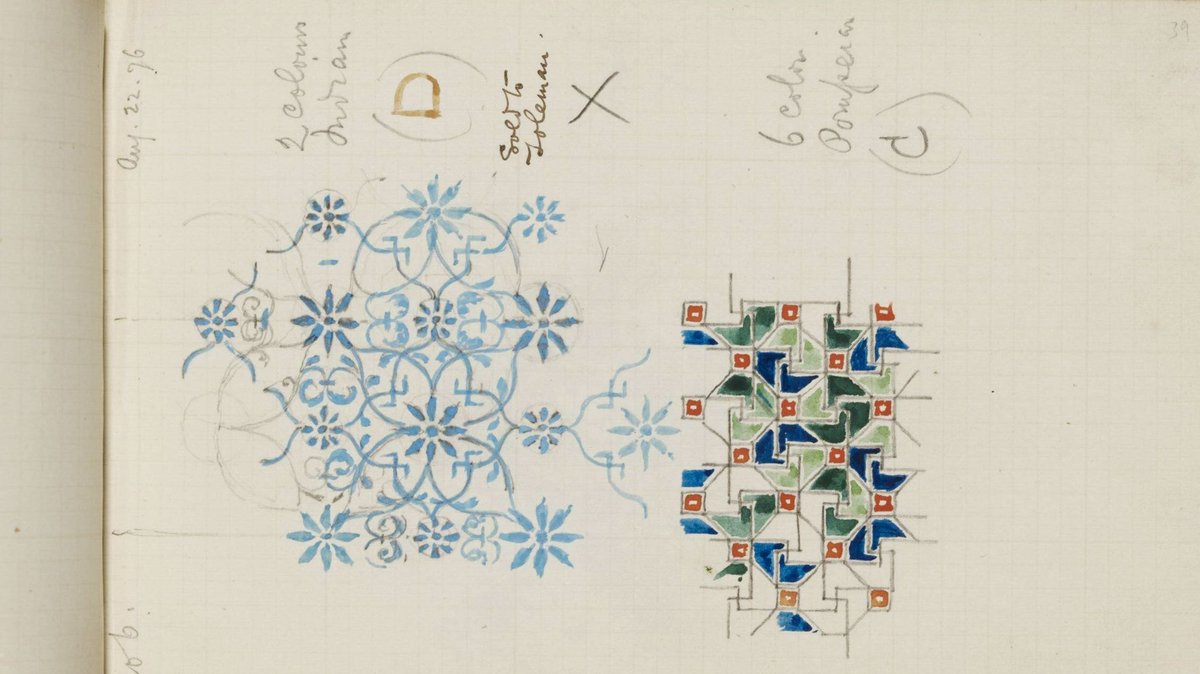 Aug. 22. 96
2 colours
Indian
(D)
Sold to
Toleman.
X
6 colour.
Pompeian
(C)
39